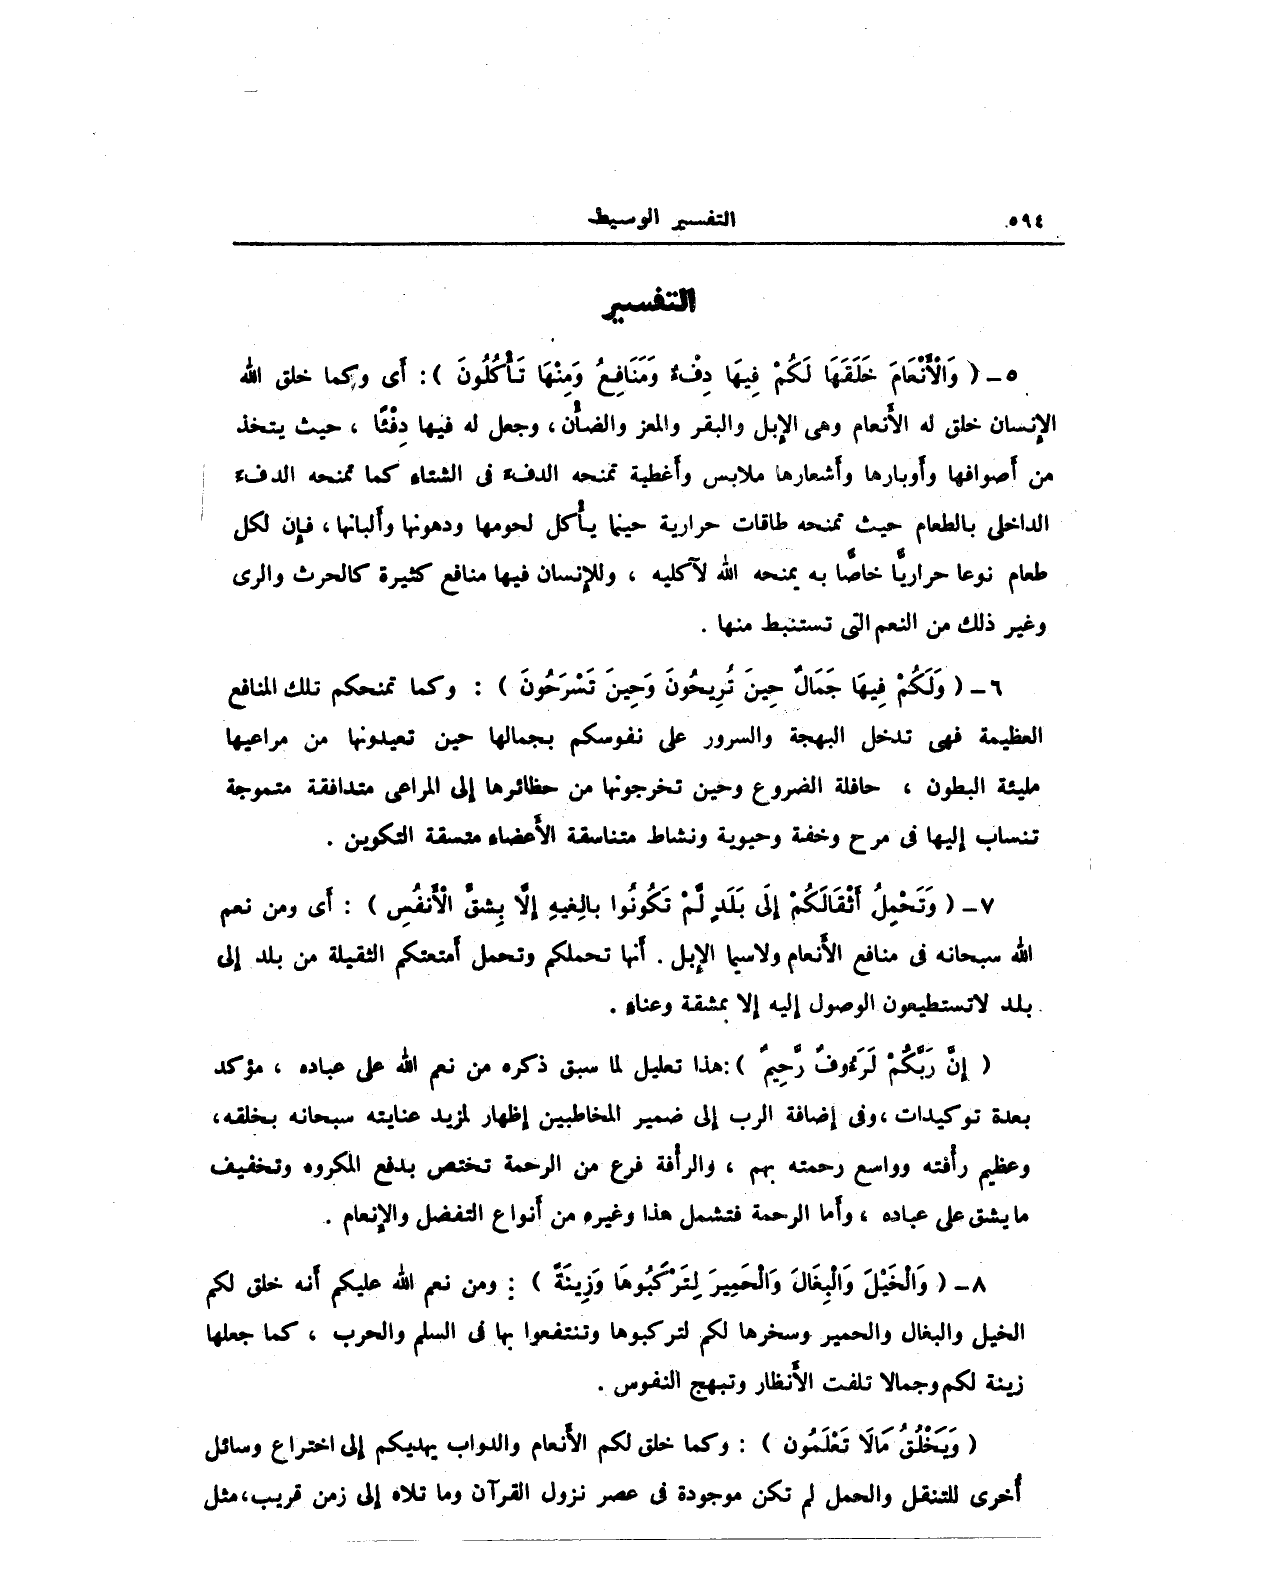 ٥٩٤ التفسير الوسيط
التفسير
٥ـ ( وَالْأَنْعَامَ خَلَقَهَا لَكُمْ فِيهَا دِفْءٌ وَمَنَافِعُ وَمِنْهَا تَأْكُلُونَ ) : أى وكما خلق الله
الإنسان خلق له الأنعام وهى الإبل والبقر والمعز والضأن ، وجعل له فيها دِفْئًا ، حيث يتخذ
من أصوافها وأوبارها وأشعارها ملابس وأغطية تمنحه الدفء فى الشتاء كما تمنحه الدفء
الداخلى بالطعام حيث تمنحه طاقات حرارية حينما يأكل لحومها ودهونها وألبانها ، فإن لكل
طعام نوعا حراريًّا خاصًّا به يمنحه الله لآكليه ، وللإنسان فيها منافع كثيرة كالحرث والرى
وغير ذلك من النعم التى تستنبط منها .
٦ـ ( وَلَكُمْ فِيهَا جَمَالٌ حِينَ تُرِيحُونَ وَحِينَ تَسْرَحُونَ ) : وكما تمنحكم تلك المنافع
العظيمة فهى تدخل البهجة والسرور على نفوسكم بجمالها حين تعيدونها من مراعيها
مليئة البطون ، حافلة الضروع وحين تخرجونها من حظائرها إلى المراعى متدافقة متموجة
تنساب إليها فى مرح وخفة وحيوية ونشاط متناسقة الأعضاء متسقة التكوين .
٧ـ ( وَتَحْمِلُ أَثْقَالَكُمْ إِلَى بَلَدٍ لَّمْ تَكُونُوا بَالِغِيهِ إِلَّا بِشِقِّ الْأَنفُسِ ) : أى ومن نعم
الله سبحانه فى منافع الأنعام ولاسيما الإبل . أنها تحملكم وتحمل أمتعتكم الثقيلة من بلد إلى
بلد لاتستطيعون الوصول إليه إلا بمشقة وعناء .
( إِنَّ رَبَّكُمْ لَرَءُوفٌ رَّحِيمٌ ) : هذا تعليل لما سبق ذكره من نعم الله على عباده ، مؤكد
بعدة توكيدات ، وفى إضافة الرب إلى ضمير المخاطبين إظهار لمزيد عنايته سبحانه بخلقه ،
وعظيم رأفته وواسع رحمته بهم ، والرأفة فرع من الرحمة تختص بدفع المكروه وتخفيف
مايشق على عباده ، وأما الرحمة فتشمل هذا وغيره من أنواع التفضل والإنعام .
٨ـ ( وَالْخَيْلَ وَالْبِغَالَ وَالْحَمِيرَ لِتَرْكَبُوهَا وَزِينَةً ) : ومن نعم الله عليكم أنه خلق لكم
الخيل والبغال والحمير وسخرها لكم لتركبوها وتنتفعوا بها فى السلم والحرب ، كما جعلها
زينة لكم وجمالا تلفت الأنظار وتبهج النفوس .
( وَيَخْلُقُ مَالَا تَعْلَمُون ) : وكما خلق لكم الأنعام والدواب يهديكم إلى اختراع وسائل
أخرى للتنقل والحمل لم تكن موجودة فى عصر نزول القرآن وما تلاه إلى زمن قريب، مثل